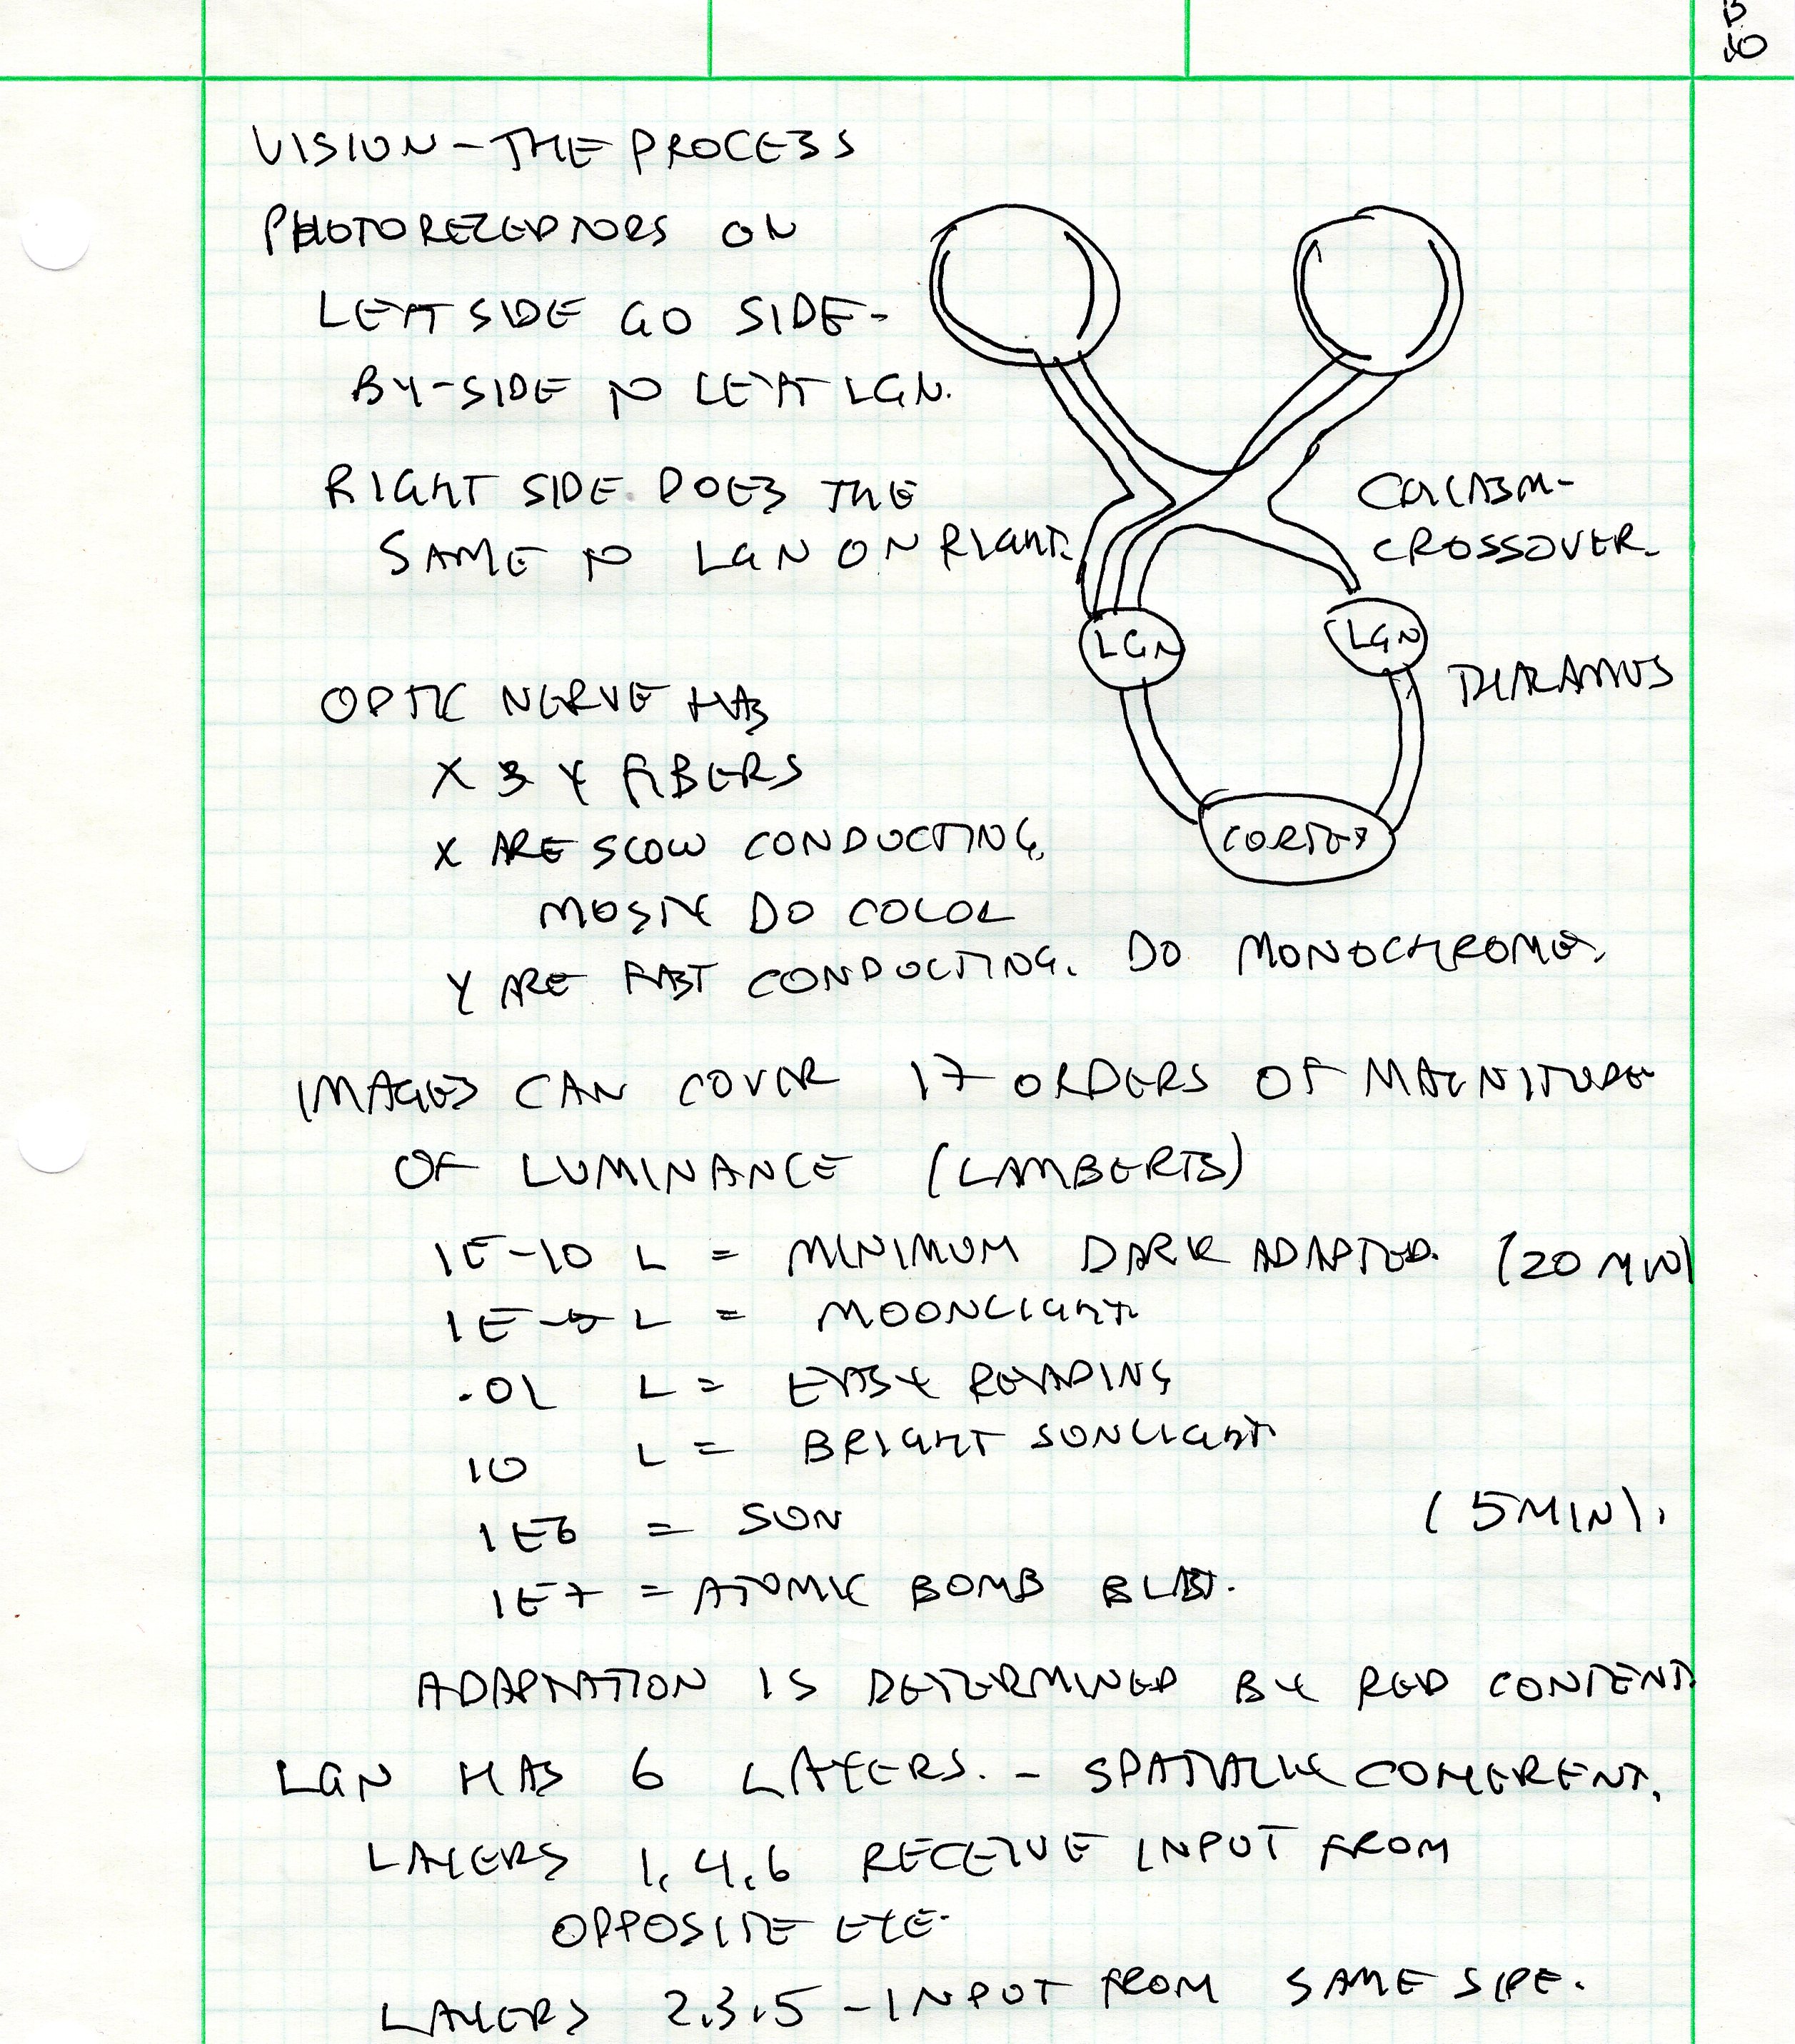 VISION - THE PROCESS
PHOTORECEPTORS ON
LEFT SIDE GO SIDE-
BY-SIDE TO LEFT LGN.
RIGHT SIDE DOES THE
SAME TO LGN ON RIGHT.
CHIASM-
CROSSOVER.
LGN
LGN
THALAMUS
CORTEX
OPTIC NERVE HAS
X & Y FIBERS
X ARE SLOW CONDUCTING,
MOSTLY DO COLOR
Y ARE FAST CONDUCTING. DO MONOCHROME.
IMAGES CAN COVER 17 ORDERS OF MAGNITUDE
OF LUMINANCE (LAMBERTS)
1E-10 L = MINIMUM DARK ADAPTED. (20 MIN)
1E-5 L = MOONLIGHT
.01 L = EASY READING
10 L = BRIGHT SUNLIGHT
1E6 = SUN (5 MIN).
1E7 = ATOMIC BOMB BLAST.
ADAPTATION IS DETERMINED BY RED CONTENT.
LGN HAS 6 LAYERS. - SPATIALLY COHERENT.
LAYERS 1, 4, 6 RECEIVE INPUT FROM
OPPOSITE EYE.
LAYERS 2, 3, 5 - INPUT FROM SAME SIDE.